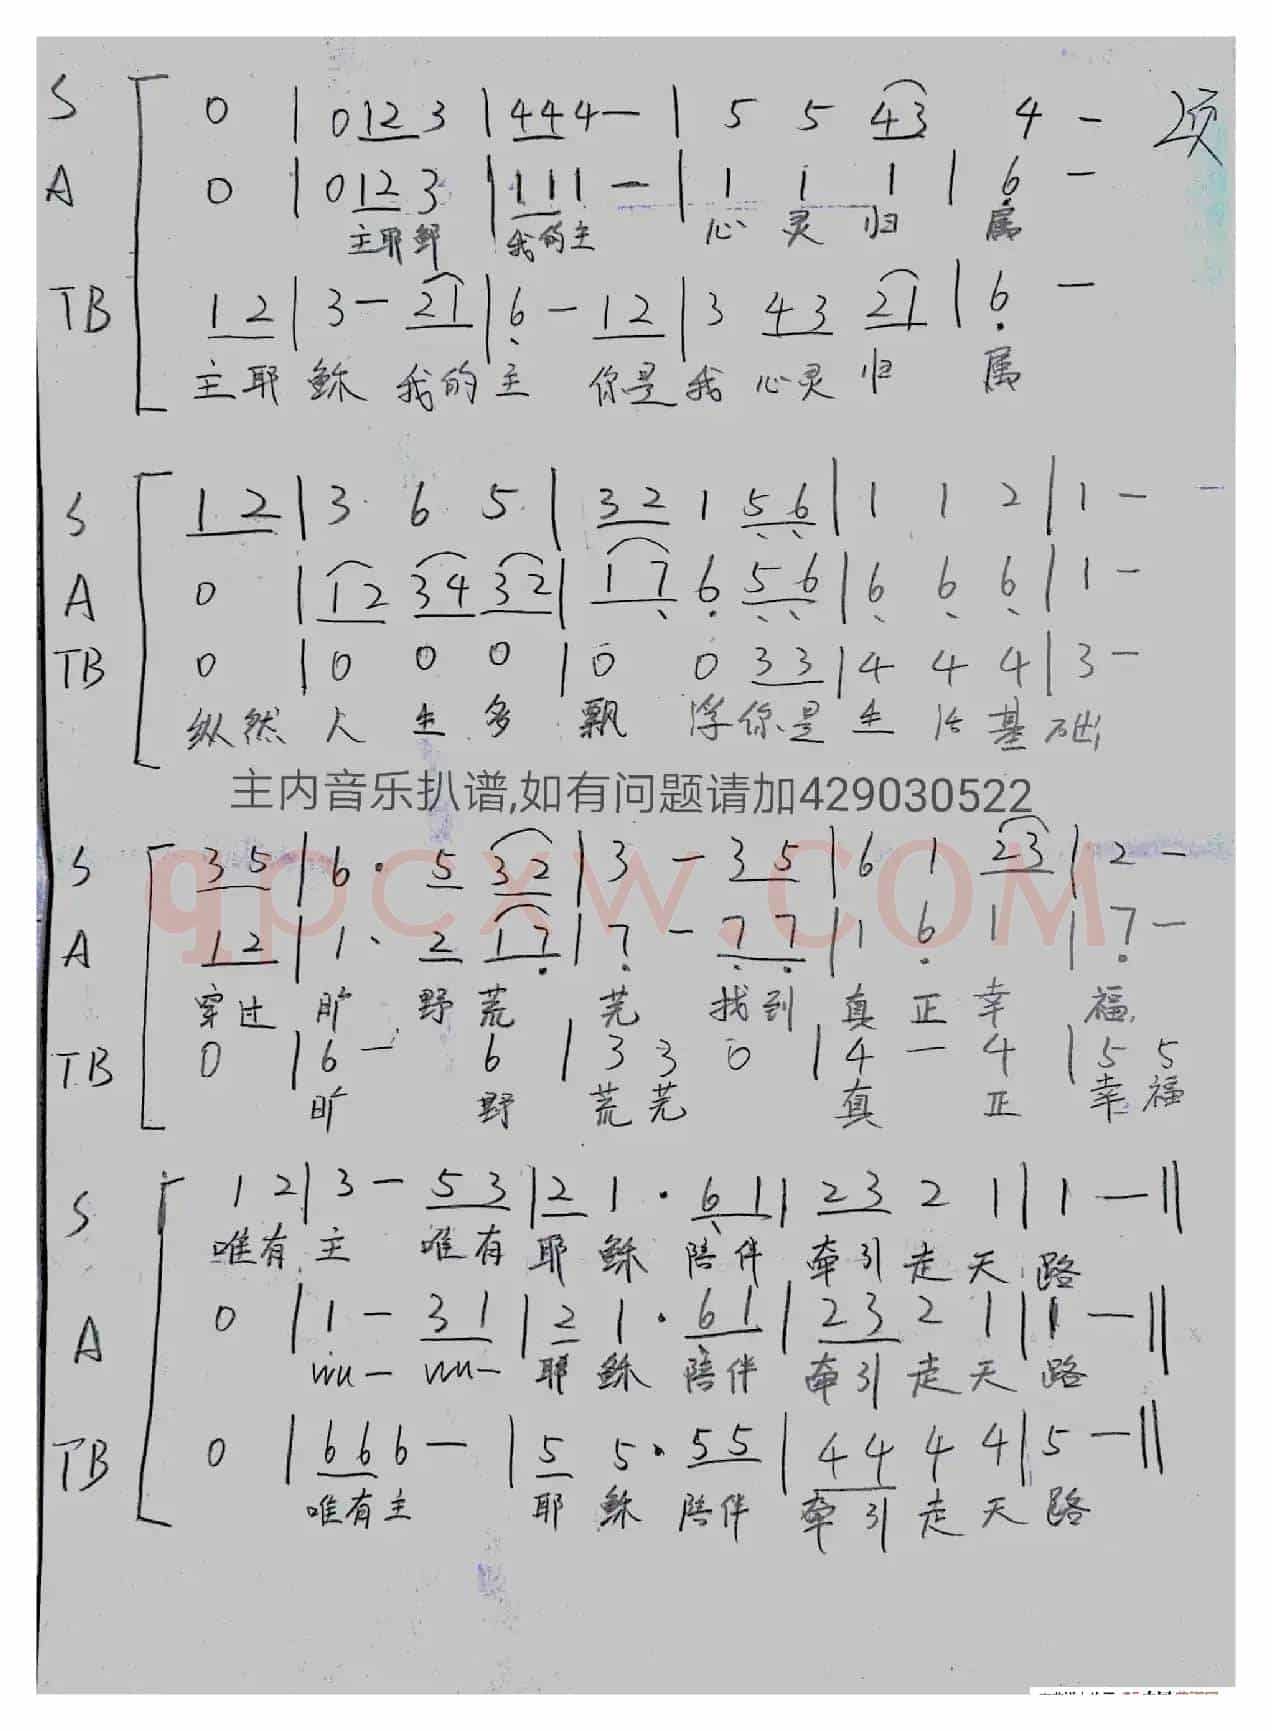 S 0 | 0 1 2 3 | 4 4 4 — | 5 5 4 3 4 — 2页
A 0 | 0 1 2 3 | 1 1 1 — | 1 1 1 | 6 —
主耶稣 我的主 心 灵 归 属
TB 1 2 | 3 — 2 1 | 6 — 1 2 | 3 4 3 2 1 | 6 —
主耶 稣 我的 主 你是 我 心灵 归 属
S 1 2 | 3 6 5 | 3 2 1 5 6 | 1 1 2 | 1 — —
A 0 | 1 2 3 4 3 2 | 1 7 6 5 6 | 6 6 6 | 1 —
TB 0 | 0 0 0 | 0 0 3 3 | 4 4 4 | 3 —
纵然 人 生 多 飘 浮 你是 生 活 基 础
主内音乐扒谱,如有问题请加429030522
qpcxw.COM
S 3 5 | 6 · 5 3 2 | 3 — 3 5 | 6 1 2 3 | 2 —
A 1 2 | 1 · 2 1 7 | 7 — 7 7 | 1 6 1 | 7 —
穿过 旷 野 荒 芜 找到 真 正 幸 福
TB 0 | 6 — 6 | 3 3 0 | 4 — 4 | 5 5
旷 野 荒 芜 真 正 幸 福
S 1 2 | 3 — 5 3 | 2 1 · 6 1 | 2 3 2 1 | 1 — ‖
唯有 主 唯有 耶 稣 陪伴 牵引 走 天 路
A 0 | 1 — 3 1 | 2 1 · 6 1 | 2 3 2 1 | 1 — ‖
wu — wu — 耶 稣 陪伴 牵引 走 天 路
TB 0 | 6 6 6 — | 5 5 · 5 5 | 4 4 4 4 | 5 — ‖
唯有主 耶 稣 陪伴 牵引 走 天 路